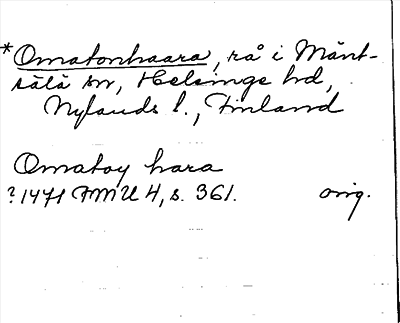 *Omatonhaara, rå i Mänt-
sälä sn, Helsinge hd,
Nylands l., Finland
Omatoy hara
? 1471 FMU 4, s. 361. orig.